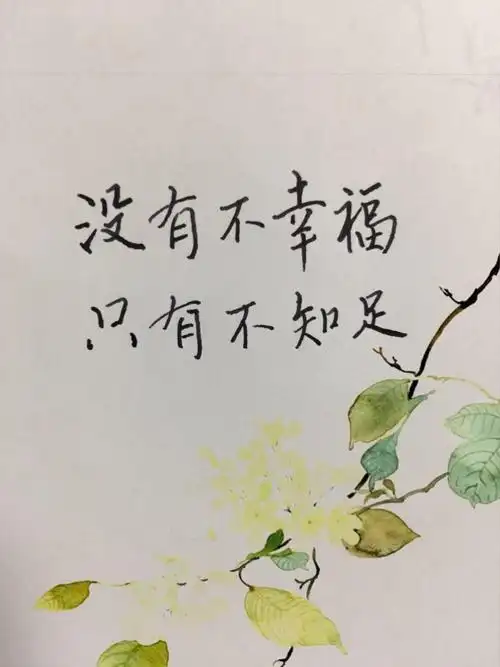 没有不幸福
只有不知足